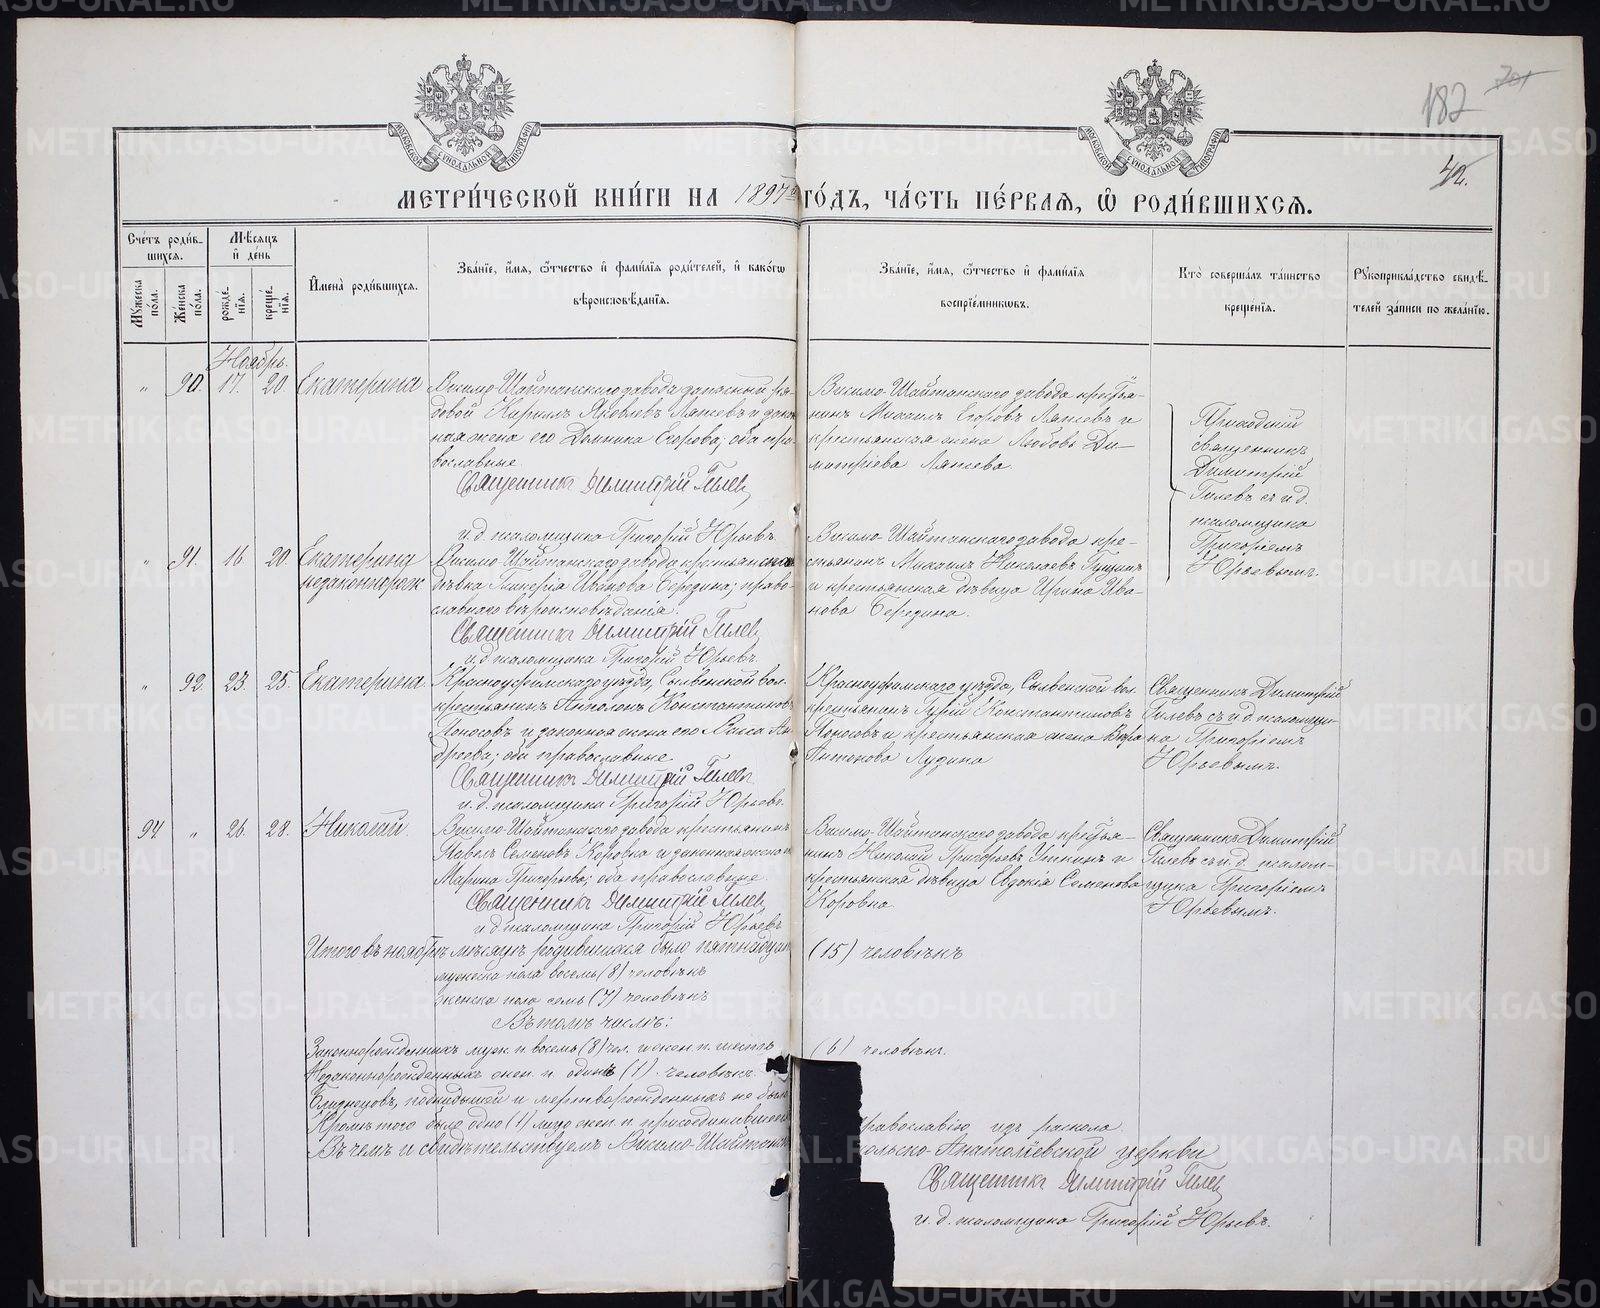 МЕТРИ́ЧЕСКОЙ КНИ́ГИ НА 1897й ГО́ДЪ, ЧА́СТЬ ПЕ́РВАЯ, Ѡ РОДИ́ВШИХСЯ.
182
42.
Сче́тъ роди́вшихся.
Мꙋжеска по́ла.
Женска по́ла.
Мѣсяцъ и҆ де́нь
рожде́нїя.
креще́нїя.
И҆мена̀ роди́вшихся.
Зва́нїе, и҆́мя, ѻ҆́тчество и҆ фами́лїя роди́телей, и҆ како́гѡ
вѣроисповѣданїя.
Зва́нїе, и҆́мя, ѻ҆́тчество и҆ фами́лїя
воспрїе́мниковъ.
Кто̀ соверша́лъ та́инство
креще́нїя.
Рꙋкоприкла́дство свидѣ́-
телей за́писи по жела́нїю.
Ноябрь.
„ 90. 17. 20. Екатерина
Висимо-Шайтанскаго завода запасный ря-
довой Кирилъ Яковлевъ Ляпцевъ и закон-
ная жена его Домника Егорова; оба пра-
вославные.
Священникъ Димитрій Гилевъ
и. д. псаломщика Григорій Юрьевъ.
Висимо-Шайтанскаго завода крестья-
нинъ Михаилъ Егоровъ Ляпцевъ и
крестьянская жена Любовь Ди-
митріева Ляпцева.
Приходскій
священникъ
Димитрій
Гилевъ съ и. д.
псаломщика
Григоріемъ
Юрьевымъ.
„ 91. 16. 20. Екатерина
незаконнорожд.
Висимо-Шайтанскаго завода крестьянская
дѣвка Гликерія Иванова Бередина; право-
славнаго вѣроисповѣданія.
Священникъ Димитрій Гилевъ
и. д. псаломщика Григорій Юрьевъ.
Висимо-Шайтанскаго завода кре-
стьянинъ Михаилъ Николаевъ Гущинъ
и крестьянская дѣвица Ирина Ива-
нова Бередина.
„ 92. 23. 25. Екатерина.
Красноуфимскаго уѣзда, Сылвенской вол.
крестьянинъ Антонъ Константиновъ
Поносовъ и законная жена его Раиса Ан-
дреева; оба православные.
Священникъ Димитрій Гилевъ
и. д. псаломщика Григорій Юрьевъ.
Красноуфимскаго уѣзда, Сылвенской вол.
крестьянинъ Гурій Константиновъ
Поносовъ и крестьянская жена Вѣра
Антонова Лузина
Священникъ Димитрій
Гилевъ съ и. д. псаломщи-
ка Григоріемъ
Юрьевымъ.
94 „ 26. 28. Николай.
Висимо-Шайтанскаго завода крестьянинъ
Павелъ Семеновъ Коровка и законная жена
Марина Григорьева; оба православные.
Священникъ Димитрій Гилевъ
и. д. псаломщика Григорій Юрьевъ
Висимо-Шайтанскаго завода крестья-
нинъ Николай Григорьевъ Уткинъ и
крестьянская дѣвица Евдокія Семенова
Коровка
Священникъ Димитрій
Гилевъ съ и. д. псалом-
щика Григоріемъ
Юрьевымъ.
Итого въ ноябрѣ мѣсяцѣ родившихся было пятнадцать (15) человѣкъ
мужеска пола восемь (8) человѣкъ
женска пола семь (7) человѣкъ
Въ томъ числѣ:
Законнорожденныхъ муж. п. восемь (8) чел. и жен. п. шесть (6) человѣкъ.
Незаконнорожденныхъ жен. п. одинъ (1) человѣкъ.
Близнецовъ, подкидышей и мертворожденныхъ не было
Кромѣ того было одно (1) лицо жен. п. присоединившееся православію изъ раскола.
Въ чемъ и свидѣтельствуемъ Висимо-Шайтанск ольско-Анатоліевской церкви
Священникъ Димитрій Гилевъ
и. д. псаломщика Григорій Юрьевъ.
METRIKI.GASO-URAL.RU